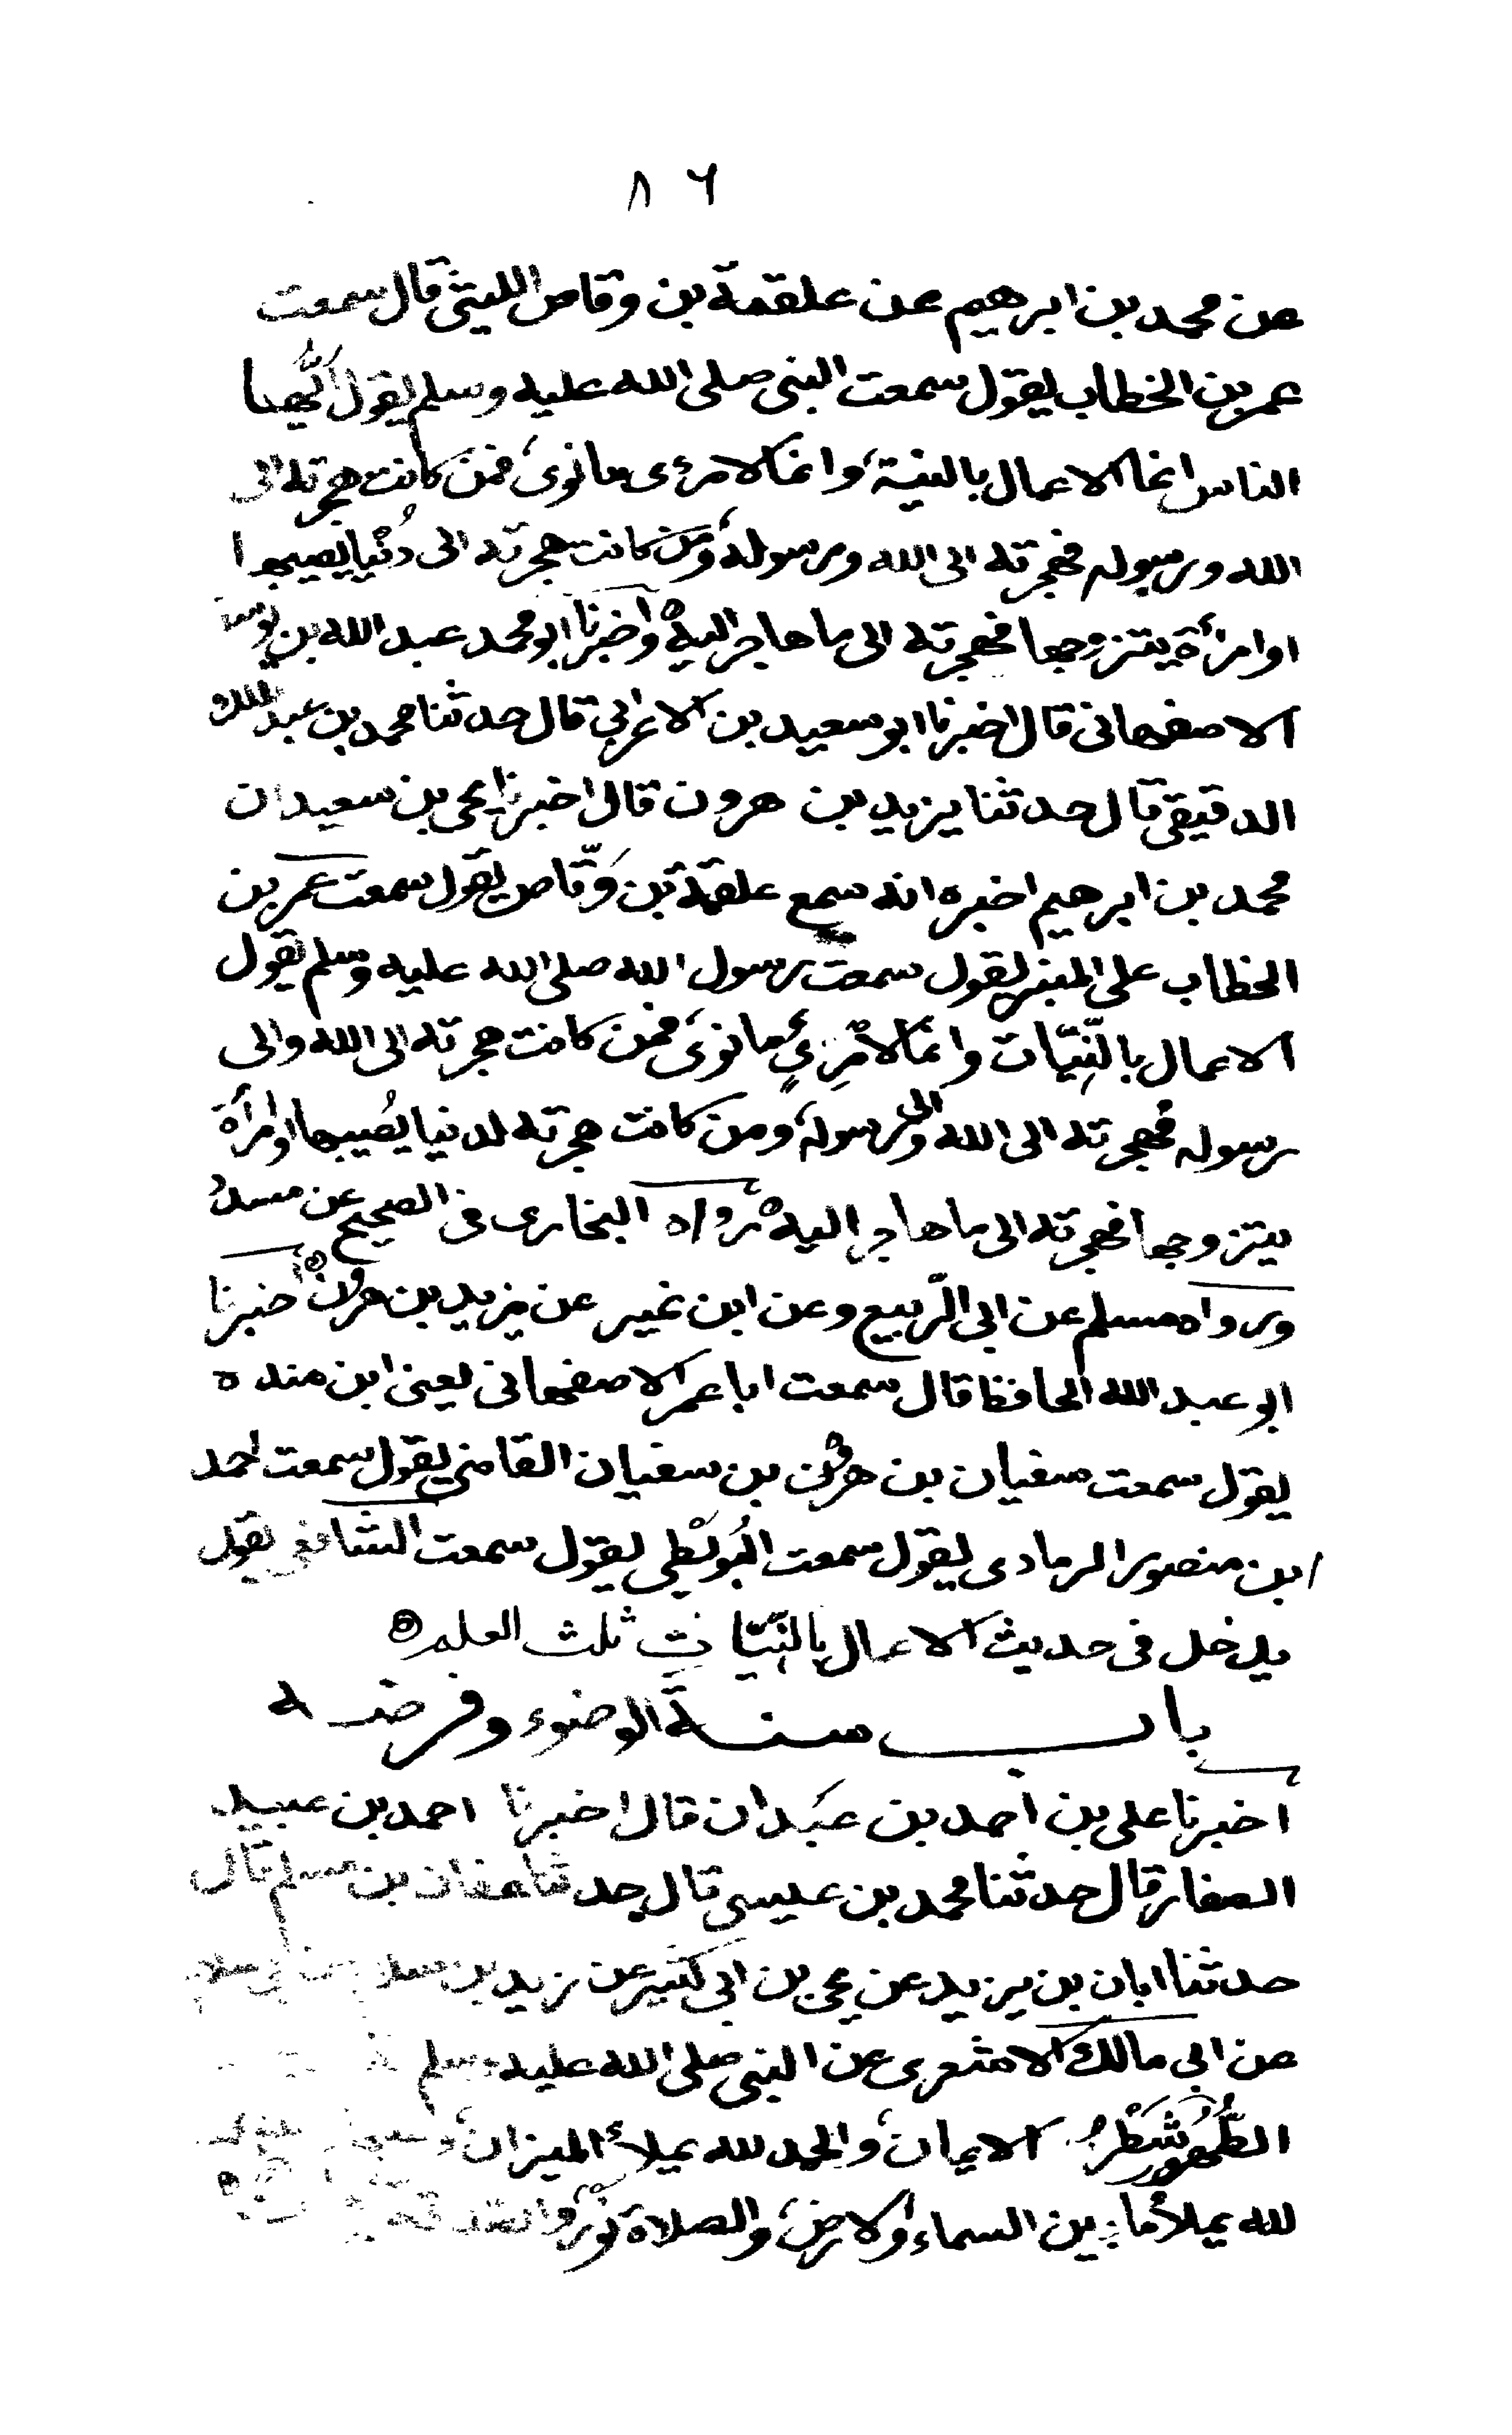 ٨٦
عن محمد بن ابرهيم عن علقمة بن وقاص الليثي قال سمعت
عمر بن الخطاب يقول سمعت النبي صلى الله عليه وسلم يقول أَيُّها
الناس انما الاعمال بالنية، وانما لامرءى ما نوى، فمن كانت هجرته الى
الله ورسوله فهجرته الى الله ورسوله، ومَن كانت هجرته الى دُنْيا يصيبها
او امرأة يتزوجها فهجرته الى ما هاجر اليه ه واخبرنا ابو محمد عبد الله بن يوسف
الاصفهاني قال اخبرنا ابو سعيد بن الاعرابي قال حدثنا محمد بن عبد الملك
الدقيقي قال حدثنا يزيد بن هرون قال اخبرنا يحيى بن سعيد ان
محمد بن ابرهيم اخبره انه سمع علقمة بن وَقّاص يقول سمعت عمر بن
الخطاب على المنبر يقول سمعت رسول الله صلى الله عليه وسلم يقول
الاعمال بالنِّيَّات وانما لامْرِئٍ ما نوى، فمن كانت هجرته الى الله والى
رسوله فهجرته الى الله والى رسوله، ومن كانت هجرته لدنيا يُصيبها او امرأة
يتزوجها فهجرته الى ما هاجر اليه ه رواه البخارى فى الصحيح عن مسدد
ورواه مسلم عن ابى الرّبيع وعن ابن نمير عن يزيد بن هرون ه اخبرنا
ابو عبد الله الحافظ قال سمعت ابا عمر الاصفهانى يعنى ابن منده
يقول سمعت سفيان بن هرون بن سفيان القاضى يقول سمعت احمد
ابن منصور الرمادى يقول سمعت البُوَيْطى يقول سمعت الشافعى يقول
يدخل فى حديث الاعمال بالنِّيّات ثلث العلم ه
باب سنة الوضوء وفرضه
اخبرنا على بن احمد بن عَبدان قال اخبرنا احمد بن عبيد
الصفار قال حدثنا محمد بن عيسى قال حدثنا عفان بن مسلم قال
حدثنا ابان بن يزيد عن يحيى بن ابى كثير عن زيد بن سلام عن ابى سلام
عن ابى مالك الاشعرى عن النبى صلى الله عليه وسلم
الطُّهُور شَطْرُ الايمان، والحمد لله يملأ الميزان،
لله يملأ ما بين السماء والارض، والصلاة نُورٌ، والصدقة